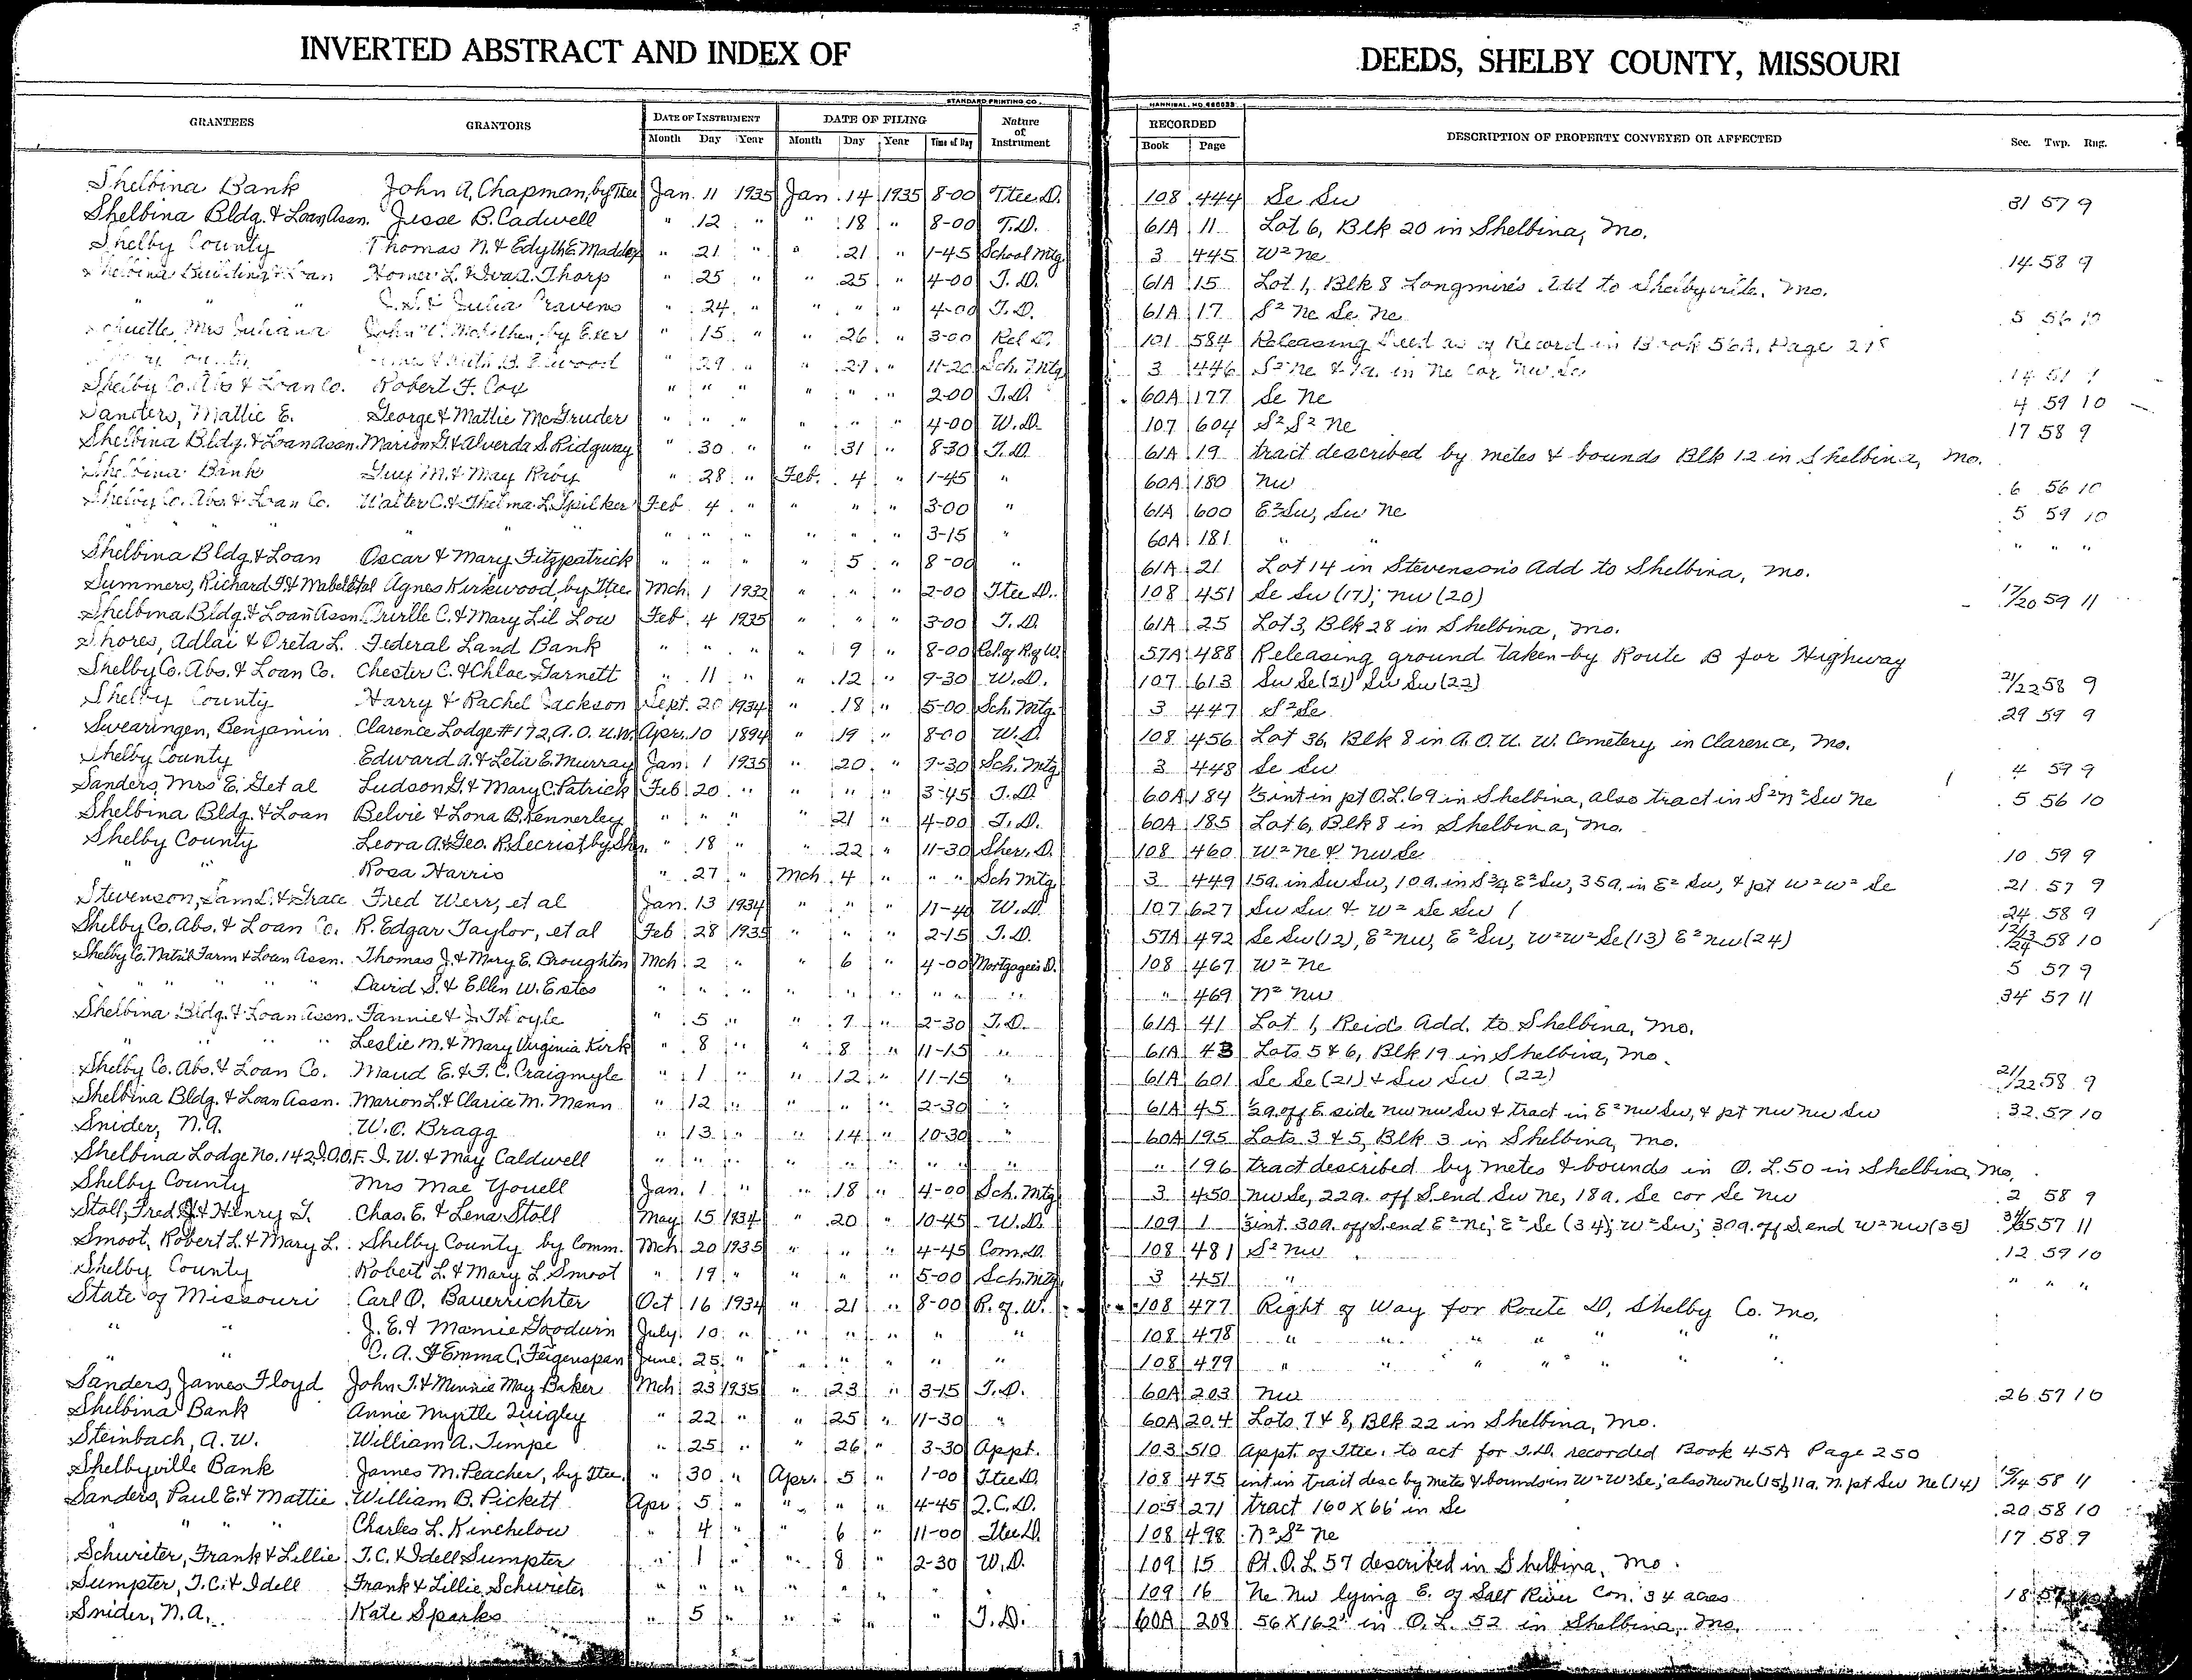 INVERTED ABSTRACT AND INDEX OF DEEDS, SHELBY COUNTY, MISSOURI
STANDARD PRINTING CO. HANNIBAL, MO.
GRANTEES GRANTORS DATE OF INSTRUMENT DATE OF FILING Nature of Instrument RECORDED DESCRIPTION OF PROPERTY CONVEYED OR AFFECTED Sec. Twp. Rng.
Month Day Year Month Day Year Time of Day Book Page
Shelbina Bank John A. Chapman, by Ttee Jan. 11 1935 Jan. 14 1935 8-00 Ttee D. 108 444 Se Sw 31 57 9
Shelbina Bldg. & Loan Assn. Jesse B. Cadwell " 12 " " 18 " 8-00 T.D. 61A 11 Lot 6, Blk 20 in Shelbina, Mo.
Shelby County Thomas N. & Edyth E. Maddox " 21 " " 21 " 1-45 School Mtg. 3 445 W² Ne 14 58 9
Shelbina Building & Loan Homer L. & Iva A. Thorp " 25 " " 25 " 4-00 T.D. 61A 15 Lot 1, Blk 8 Longmire's Add to Shelbyville, Mo.
" " " & Julia Cravens " 24 " " " " 4-00 T.D. 61A 17 S² Ne Se Ne 5 56 10
Mrs Juliana John by Exer " 15 " " 26 " 3-00 Rel D. 101 584 Releasing Deed as of Record in Book 56A, Page
" 29 " " 29 " 11-20 Sch. Mtg. 3 446 S² Ne & 1a. in Ne cor Nw Se 14
Shelby Co. Abs & Loan Co. Robert F. Cox " " " " " " 2-00 T.D. 60A 177 Se Ne 4 59 10
Sanders, Mattie E. George & Mattie McGruder " " " " " " 4-00 W.D. 107 604 S² S² Ne 17 58 9
Shelbina Bldg. & Loan Assn. Marion G. & Alverda S. Ridgway " 30 " " 31 " 8-30 T.D. 61A 19 tract described by metes & bounds Blk 12 in Shelbina, Mo.
Shelbina Bank Guy M. & May Raby " 28 " Feb. 4 " 1-45 " 60A 180 Nw 6 56 10
Shelby Co. Abs. & Loan Co. Walter C. & Thelma L. Spilker Feb 4 " " " " 3-00 " 61A 600 E² Sw, Sw Ne 5 59 10
" " " " " " " " " " 3-15 " 60A 181 " " " " "
Shelbina Bldg. & Loan Oscar & Mary Fitzpatrick " " " " 5 " 8-00 " 61A 21 Lot 14 in Stevenson's Add to Shelbina, Mo.
Summers, Richard T. & Mabel et al Agnes Kirkwood, by Ttee Mch. 1 1932 " " " 2-00 Ttee D. 108 451 Se Sw (17); Nw (20) 17/20 59 11
Shelbina Bldg. & Loan Assn. Orville C. & Mary Lil Low Feb. 4 1935 " " " 3-00 T.D. 61A 25 Lot 3, Blk 28 in Shelbina, Mo.
Shores, Adlai & Oreta L. Federal Land Bank " " " " 9 " 8-00 57A 488 Releasing ground taken by Route B for Highway
Shelby Co. Abs. & Loan Co. Chester C. & Chloe Garnett " 11 " " 12 " 9-30 W.D. 107 613 Sw Se (21) Sw Sw (22) 21/22 58 9
Shelby County Harry & Rachel Jackson Sept. 20 1934 " 18 " 5-00 Sch. Mtg. 3 447 S² Se 29 59 9
Swearingen, Benjamin Clarence Lodge #172, A.O.U.W. Apr. 10 1894 " 19 " 8-00 W.D. 108 456 Lot 36, Blk 8 in A.O.U.W. Cemetery in Clarence, Mo.
Shelby County Edward A. & Leta E. Murray Jan. 1 1935 " 20 " 9-30 Sch. Mtg 3 448 Se Sw 4 59 9
Sanders, Mrs E. G. et al Ludson G. & Mary C. Patrick Feb 20 " " " " 3-45 T.D. 60A 184 ⅓ int in pt O.L. 69 in Shelbina, also tract in S² N² Sw Ne 5 56 10
Shelbina Bldg. & Loan Belvie & Lona B. Kennerley " " " " 21 " 4-00 T.D. 60A 185 Lot 6, Blk 8 in Shelbina, Mo.
Shelby County Leora A. & Geo. R. Secrist by Shr. " 18 " " 22 " 11-30 Sher. D. 108 460 W² Ne & Nw Se 10 59 9
" " Rosa Harris " 27 " Mch 4 " " " Sch Mtg 3 449 15a. in Sw Sw, 10a. in S¾ E² Sw, 35a. in E² Sw, & pt W² W² Se 21 57 9
Stevenson, Sam L. & Grace Fred Werr, et al Jan. 13 1934 " " " 11-40 W.D. 107 627 Sw Sw & W² Se Sw 24 58 9
Shelby Co. Abs. & Loan Co. R. Edgar Taylor, et al Feb 28 1935 " " " 2-15 T.D. 57A 492 Se Sw (12), E² Nw, E² Sw, W² W² Se (13) E² Nw (24) 12/13/24 58 10
Shelby Co. Nat'l Farm & Loan Assn. Thomas J. & Mary E. Broughton Mch. 2 " " 6 " 4-00 Mortgagee's D. 108 467 W² Ne 5 57 9
" " " " David S. & Ellen W. Estes " " " " " " " " " " 469 N² Nw 34 57 11
Shelbina Bldg. & Loan Assn. Fannie & J. T. Hoyle " 5 " " 7 " 2-30 T.D. 61A 41 Lot 1, Reid's Add. to Shelbina, Mo.
" " " " Leslie M. & Mary Virginia Kirk " 8 " " 8 " 11-15 " 61A 43 Lots 5 & 6, Blk 19 in Shelbina, Mo.
Shelby Co. Abs. & Loan Co. Maud E. & T. C. Craigmyle " 1 " " 12 " 11-15 " 61A 601 Se Se (21) & Sw Sw (22) 21/22 58 9
Shelbina Bldg. & Loan Assn. Marion L. & Clarice M. Mann " 12 " " " " 2-30 " 61A 45 ½a. off E. side Nw Nw Sw & tract in E² Nw Sw, & pt Nw Nw Sw 32 57 10
Snider, N.A. W.O. Bragg " 13 " " 14 " 10-30 " 60A 195 Lots 3 & 5, Blk 3 in Shelbina, Mo.
Shelbina Lodge No. 142, I.O.O.F. I. W. & May Caldwell " " " " " " " " " 196 tract described by metes & bounds in O.L. 50 in Shelbina, Mo.
Shelby County Mrs Mae Youell Jan. 1 " " 18 " 4-00 Sch. Mtg 3 450 Nw Se, 22a. off S. end Sw Ne, 18a. Se cor Se Nw 2 58 9
Stoll, Fred J. & Henry T. Chas. E. & Lena Stoll May 15 1934 " 20 " 10-45 W.D. 109 1 ⅓ int. 30a. off S. end E² Ne; E² Se (34); W² Sw; 30a. off S. end W² Nw (35) 34/35 57 11
Smoot, Robert L. & Mary L. Shelby County by Comm. Mch. 20 1935 " " " 4-45 Com. D. 108 481 S² Nw 12 59 10
Shelby County Robert L. & Mary L. Smoot " 19 " " " " 5-00 Sch. Mtg. 3 451 " " " "
State of Missouri Carl O. Bauerrichter Oct 16 1934 " 21 " 8-00 R. of W. 108 477 Right of Way for Route D, Shelby Co. Mo.
" " J. E. & Mamie Goodwin July. 10 " " " " " " 108 478 " " " " " " "
" " C. A. & Emma C. Feigenspan June. 25 " " " " " " 108 479 " " " " " " "
Sanders, James Floyd John T. & Minnie May Baker Mch. 23 1935 " 23 " 3-15 T.D. 60A 203 Nw 26 57 10
Shelbina Bank Annie Myrtle Quigley " 22 " " 25 " 11-30 " 60A 204 Lots 7 & 8, Blk 22 in Shelbina, Mo.
Steinbach, A. W. William A. Timpe " 25 " " 26 " 3-30 Appt. 103 510 Appt. of Ttee. to act for T.D. recorded Book 45A Page 250
Shelbyville Bank James M. Peacher, by Ttee. " 30 " Apr. 5 " 1-00 Ttee D. 108 495 int in tract desc by mets & bounds in W² W² Se; also Nw Ne (15), 11a. N. pt Sw Ne (14) 15/14 58 11
Sanders, Paul E. & Mattie William B. Pickett Apr 5 " " " " 4-45 Q.C.D. 105 271 tract 160 X 66' in Se 20 58 10
" " " " Charles L. Kinchelow " 4 " " 6 " 11-00 Ttee D. 108 498 N² S² Ne 17 58 9
Schwieter, Frank & Lillie T. C. & Idell Sumpter " 1 " " 8 " 2-30 W.D. 109 15 Pt. O.L. 57 described in Shelbina, Mo.
Sumpter, T. C. & Idell Frank & Lillie Schwieter " " " " " " " " 109 16 Ne Nw lying E. of Salt River Con. 34 acres 18 57
Snider, N.A. Kate Sparks " 5 " " " " " T.D. 60A 208 56 X 162' in O.L. 52 in Shelbina, Mo.